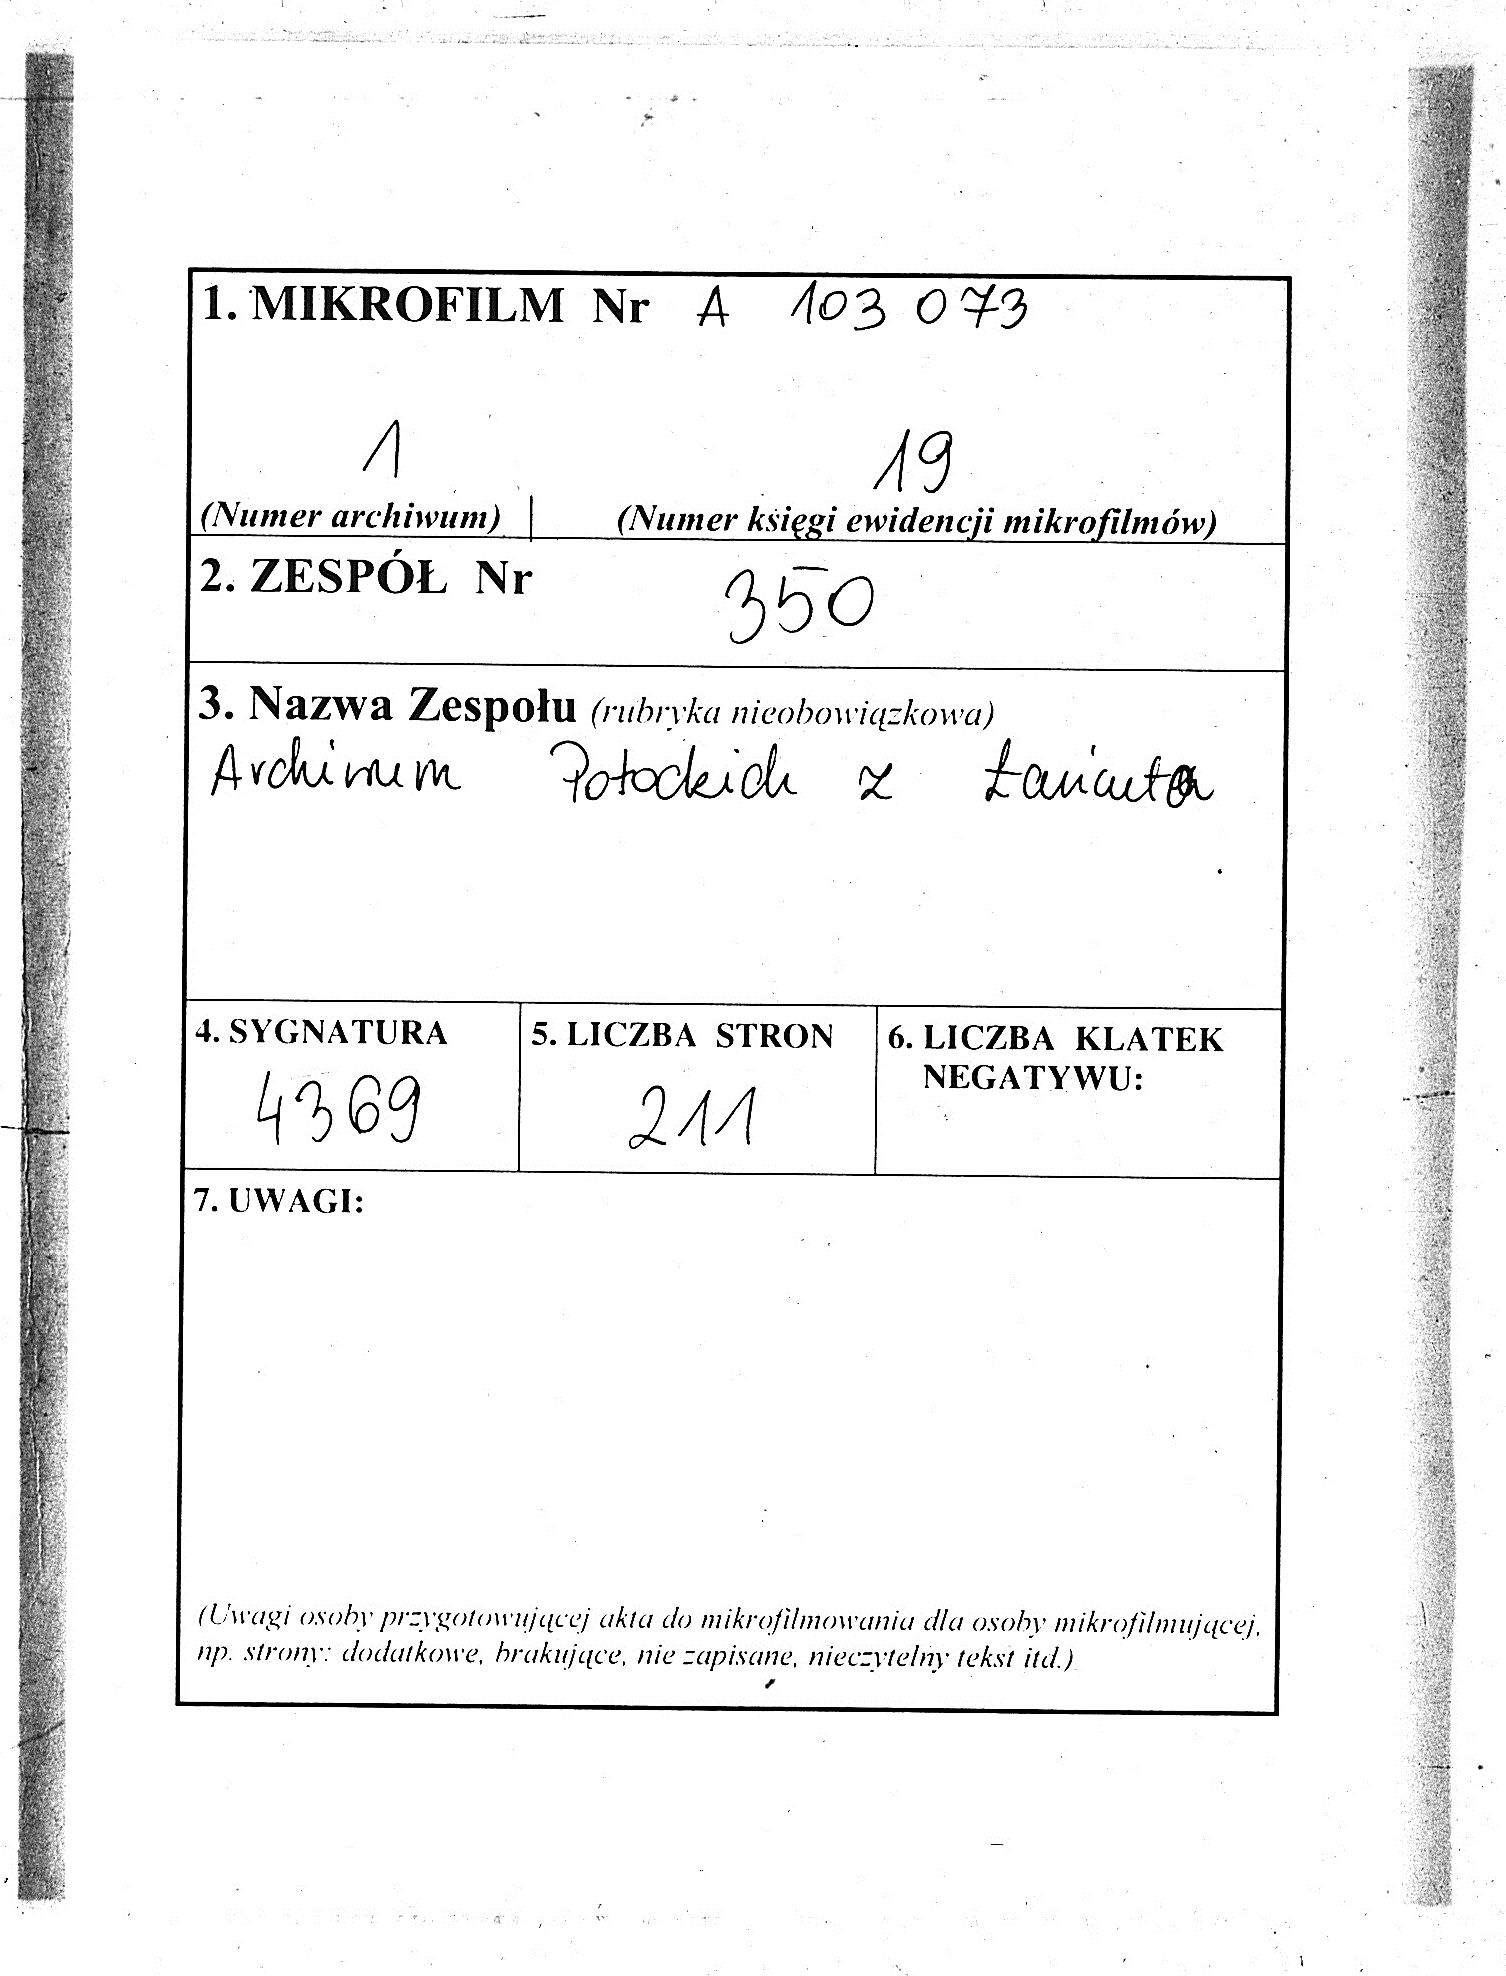 1. MIKROFILM Nr A 103 073
1 19
(Numer archiwum) (Numer księgi ewidencji mikrofilmów)
2. ZESPÓŁ Nr 350
3. Nazwa Zespołu (rubryka nieobowiązkowa)
Archiwum Potockich z Łańcuta
4. SYGNATURA 5. LICZBA STRON 6. LICZBA KLATEK
NEGATYWU:
4369 211
7. UWAGI:
(Uwagi osoby przygotowującej akta do mikrofilmowania dla osoby mikrofilmującej,
np. strony: dodatkowe, brakujące, nie zapisane, nieczytelny tekst itd.)